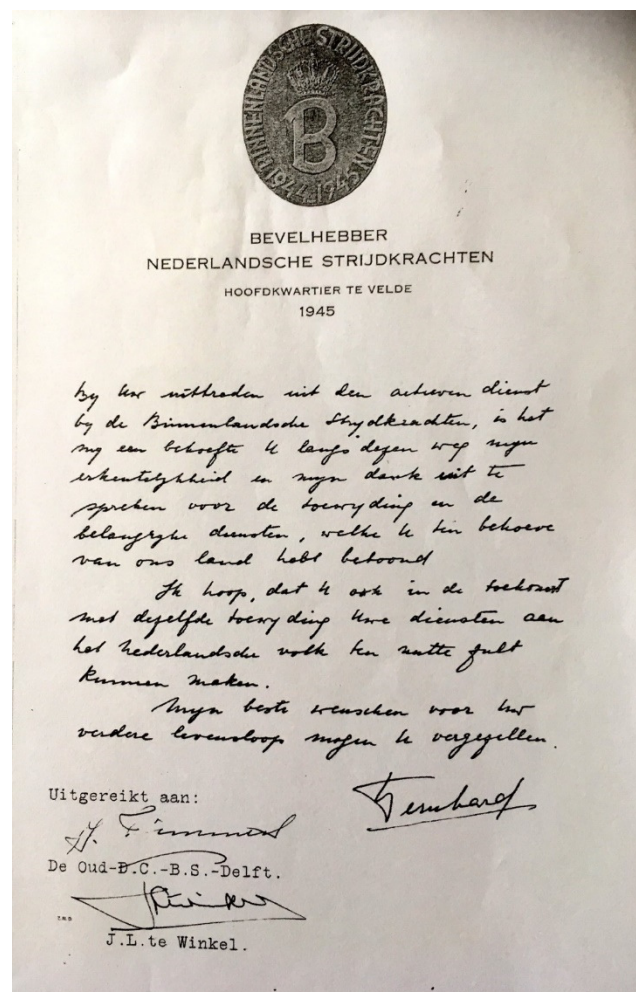 BINNENLANDSCHE STRIJDKRACHTEN
B
1944-1945
BEVELHEBBER
NEDERLANDSCHE STRIJDKRACHTEN
HOOFDKWARTIER TE VELDE
1945
By Uw uittreden uit den actieven dienst
by de Binnenlandsche Strydkrachten, is het
my een behoefte U langs dezen weg myn
erkentelykheid en myn dank uit te
spreken voor de toewyding en de
belangryke diensten, welke U ten behoeve
van ons land hebt betoond
Ik hoop, dat U ook in de toekomst
met dezelfde toewyding Uwe diensten aan
het Nederlandsche volk ten nutte zult
kunnen maken.
Myn beste wenschen voor Uw
verdere levensloop mogen U vergezellen.
Bernhard
Uitgereikt aan:
De Oud-D.C.-B.S.-Delft.
J.L.te Winkel.